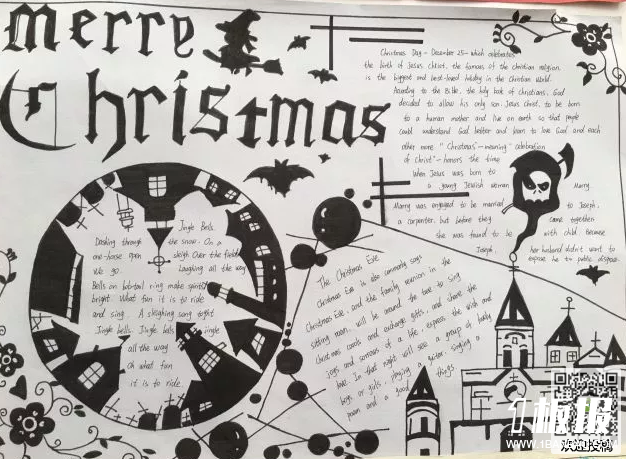 Merry
Christmas
Christmas Day - December 25 - which celebrates
the birth of Jesus Christ, the famous of the christian religion,
is the biggest and best-loved holiday in the Christian World.
According to the Bible, the holy book of Christians, God
decided to allow his only son, Jesus Christ, to be born
to a human mother and live on earth so that people
could understand God better and learn to love God and each
other more. "Christmas - meaning" celebration
of Christ" - honors the time
When Jesus was born to
a young Jewish woman Marry
Marry was engaged to be married to Joseph,
a carpenter, but before they came together
she was found to be with child. Because
Joseph, her husband didn't want to
expose her to public
Jingle Bells
Dashing through the snow. On a
one-horse open sleigh Over the fields
We go. Laughing all the way
Bells on bob-tail ring make spirits
bright. What fun it is to ride
and sing. A sleighing song night
Jingle bells. Jingle bells jingle
all the way
Oh what fun
it is to ride.
The Christmas Eve
Christmas Eve is also commonly says
Christmas Eve, and the family reunion in the
sitting room, will be around the tree to sing
Christmas carols and exchange gifts, and share the
joys and sorrows of a life, express the wish and
love. In that night will see a group of lovely
boys or girls, playing guitar, singing a
poem and a good things
板报
欢迎投稿